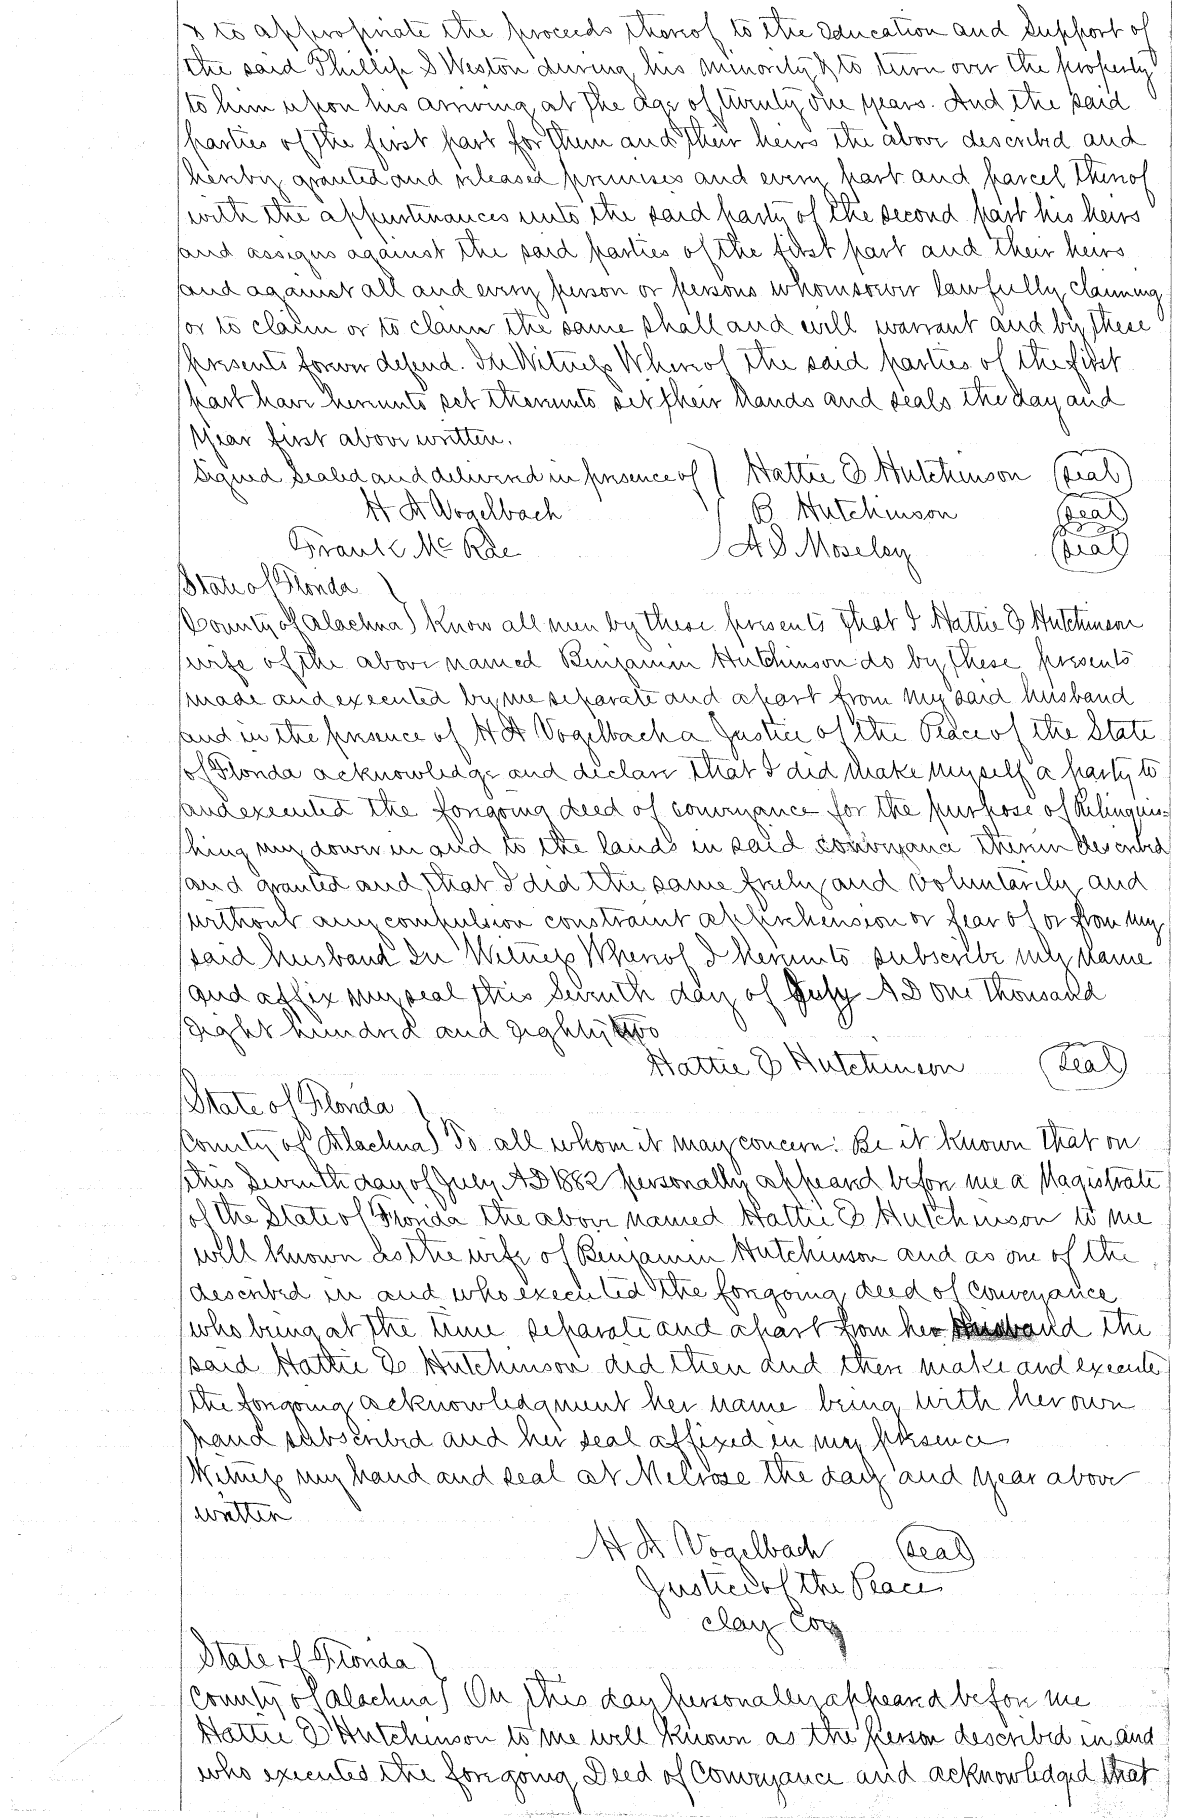 & to appropriate the proceeds thereof to the Education and Support of
the said Phillip S Weston during his minority & to turn over the property
to him upon his arriving at the age of twenty one years. And the said
parties of the first part for them and their heirs the above described and
hereby granted and released premises and every part and parcel thereof
with the appurtenances unto the said party of the second part his heirs
and assigns against the said parties of the first part and their heirs
and against all and every person or persons whomsoever lawfully claiming
or to claim or to claim the same shall and will warrant and by these
presents forever defend. In Witness Whereof the said parties of the first
part have hereunto set thereunto set their hands and seals the day and
year first above written.
Signed Sealed and delivered in presence of ) Hattie E Hutchinson (seal)
H A Vogelbach B Hutchinson (seal)
Frank McRae A S Moseley (seal)
State of Florida )
County of Alachua ) Know all men by these presents that I Hattie E Hutchinson
wife of the above named Benjamin Hutchinson do by these presents
made and executed by me separate and apart from my said husband
and in the presence of H A Vogelbach a Justice of the Peace of the State
of Florida acknowledge and declare that I did make myself a party to
and executed the foregoing deed of conveyance for the purpose of Relinquis-
hing my dower in and to the lands in said conveyance therein described
and granted and that I did the same freely and voluntarily and
without any compulsion constraint apprehension or fear of or from my
said husband In Witness Whereof I hereunto subscribe my name
and affix my seal this Seventh day of July AD one thousand
Eight hundred and Eighty two
Hattie E Hutchinson (Seal)
State of Florida )
County of Alachua ) To all whom it may concern: Be it known that on
this Seventh day of July AD 1882 personally appeared before me a Magistrate
of the State of Florida the above named Hattie E Hutchinson to me
well known as the wife of Benjamin Hutchinson and as one of the
described in and who executed the foregoing deed of Conveyance
who being at the time separate and apart from her husband the
said Hattie E Hutchinson did then and there make and execute
the foregoing acknowledgment her name being with her own
hand subscribed and her seal affixed in my presence
Witness my hand and seal at Melrose the day and year above
written
H A Vogelbach (seal)
Justice of the Peace
Clay Coy
State of Florida )
County of Alachua ) On this day personally appeared before me
Hattie E Hutchinson to me well known as the person described in and
who executed the foregoing Deed of Conveyance and acknowledged that